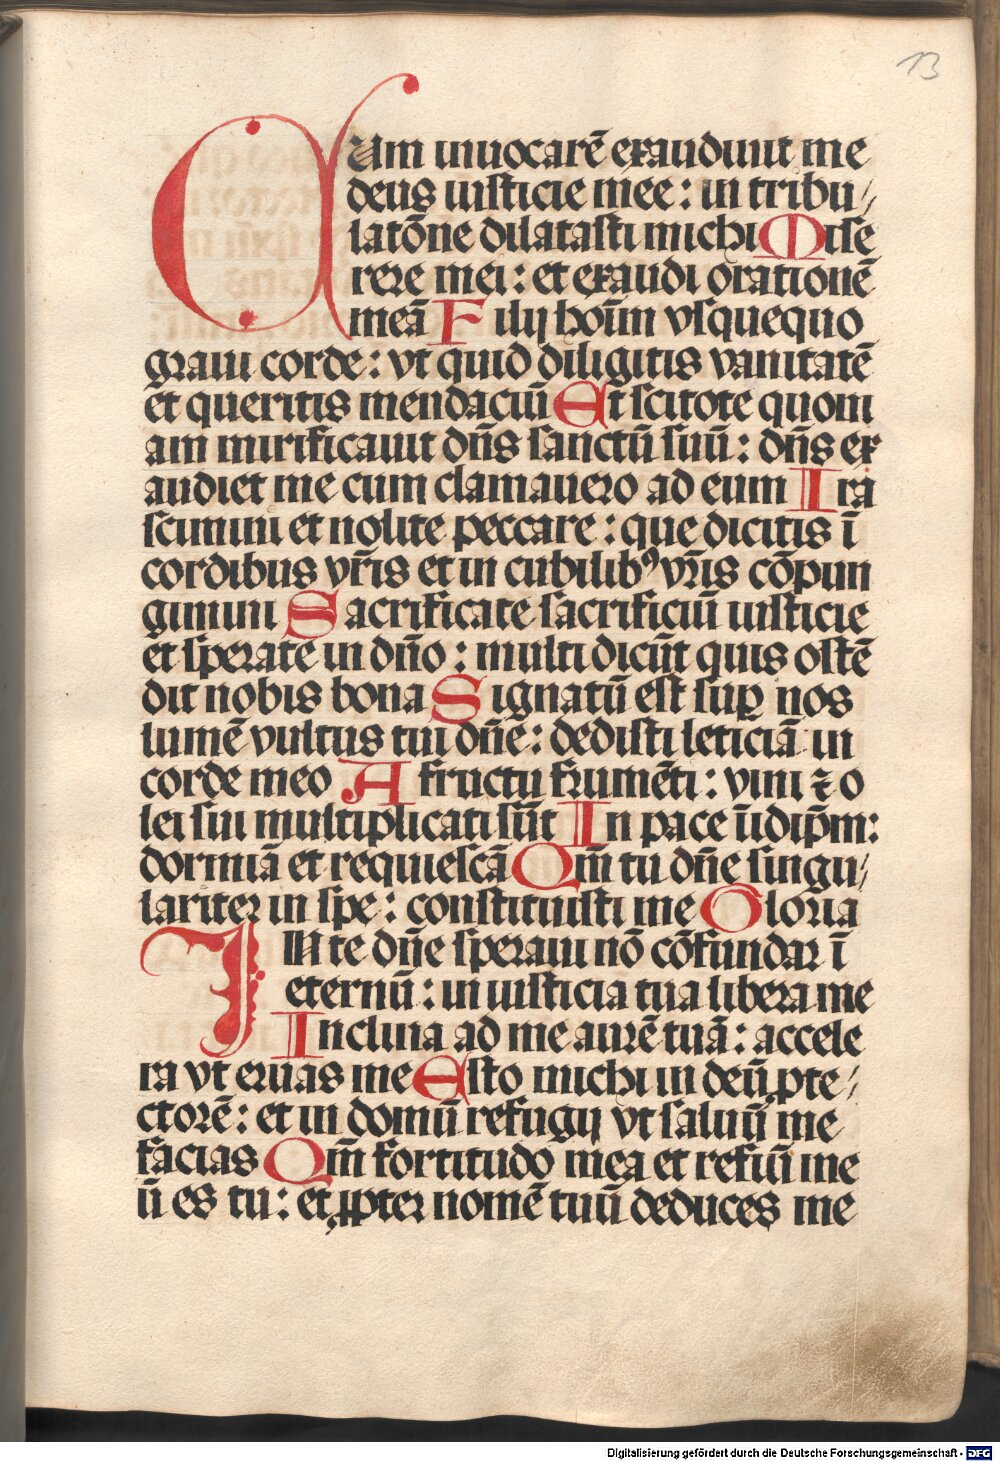 13
CUm inuocarē exaudiuit me
deus iusticie mee : in tribu
latōne dilatasti michi Mise
rere mei : et exaudi orationē
meā Filij hoīm vsquequo
graui corde : vt quid diligitis vanitatē
et queritis mendaciū Et scitote quoni
am mirificauit dn̄s sanctū suū : dn̄s ex
audiet me cum clamauero ad eum Ira
scimini et nolite peccare : que dicitis ī
cordibus vr̄is et in cubilibꝰ vr̄is cōpun
gimini Sacrificate sacrificiū iusticie
et sperate in dn̄o : multi dicūt quis ostē
dit nobis bona Signatū est suꝑ nos
lumē vultus tui dn̄e : dedisti leticiā in
corde meo A fructu frumēti : vini ⁊ o
lei sui multiplicati sūt In pace īidip̄m :
dormiā et requiescā Qm̄ tu dn̄e singu
lariter in spe : constituisti me Gloria
IN te dn̄e speraui nō cōfundar ī
eternū : in iusticia tua libera me
Inclina ad me aurē tuā : accele
ra vt eruas me Esto michi in deū ꝓte
ctorē : et in domū refugij vt saluū me
facias Qm̄ fortitudo mea et refiū me
ū es tu : et ꝓpter nomē tuū deduces me
Digitalisierung gefördert durch die Deutsche Forschungsgemeinschaft - DFG